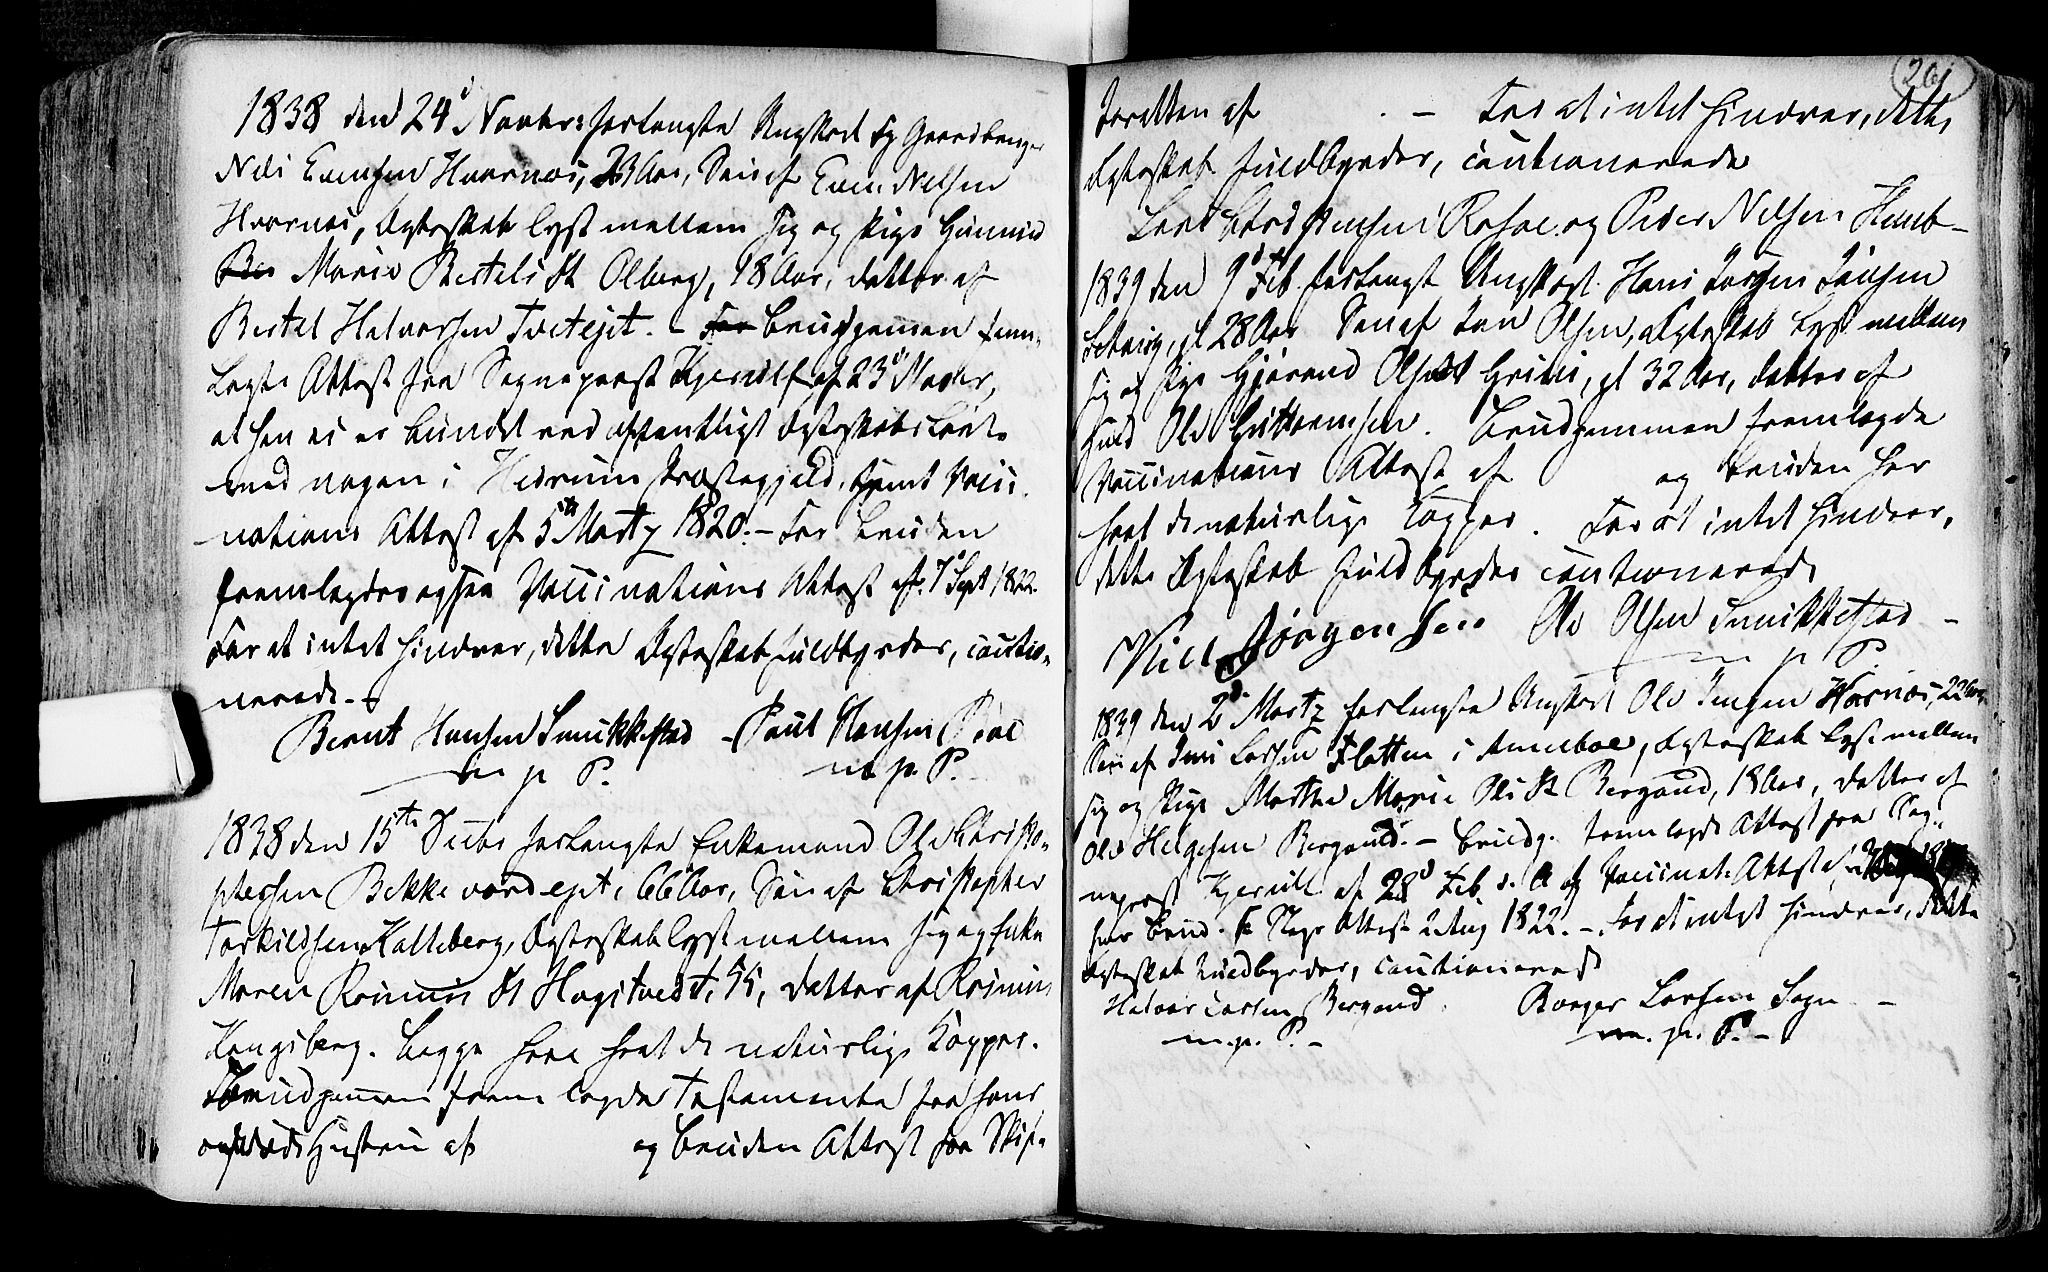 1838 den 24d Novbr: forlangte Ungkarl og Gaardbruger
Nils Evensen Hvarnes, 23 Aar, Søn af Even Nilsen
Hvarnes, Ægteskabs Lyst mellem sig og Pige Gunnild
Ber Marie Bertels Dt Olberg, 18 Aar, datter af
Bertel Halvorsen Tvetejet. – For Brudgommen frem-
lagte Attest fra Sognepræst Kjerulf af 23d Novbr,
at han ei er bundet ved offentligt Ægteskabs Løvte
med nogen i Hedrum Præstegjeld, samt Vacci-
nations Attest af 5te Martz 1820. – For Bruden
fremlagdes ogsaa Vaccinations Attest af 7d Sept 1822.
For at intet hindrer, dette Ægteskab fuldbyrdes, cautio-
nerede –
Bernt Hansen Smukkestad – Poul Hansen Bøe
m p P. m. p. P.
1838 den 15de Decbr forlangte Enkemand Ole Christo-
phersen Bekkevardejet, 66 Aar, Søn af Christopher
Torkildsen Kalleberg, Ægteskabs Lyst mellem sig og Enke
Maren Rasmus Dt Hogstvedt, 55, datter af Rasmus
Kongsberg. Begge have havt de naturlige Kopper.
Brudgommen fremlagde Testamente fra hans
Hustru af og Bruden Attest fra Skif-
201
teretten af . – For at intet hindrer, dette
Ægteskab fuldbyrdes, cautionerede
Lars Christensen og Peder Nilsen
1839 den 9d Feb. forlangte Ungkarl Hans Jørgen Jansen
gl 28 Aar Søn af Jan Olsen, Ægteskabs Lyst mellem
sig og Pige Gjørand Olsdt Grini, gl 32 Aar, datter af
Ole Guttormsen. Brudgommen fremlagde
Vaccinations Attest af og Bruden har
havt de naturlige Kopper. For at intet hindrer,
dette Ægteskab fuldbyrdes cautionerede
Niels Jørgensen Ole Olsen Smukkestad –
m p P.
1839 den 2d Martz forlangte Ungkarl Ole Jensen Hvarnes, 22 Aar,
Søn af Jens Larsen Flatten i Ameboe, Ægteskabs Lyst mellem
sig og Pige Marthe Marie Ols Dt Bergand, 18 Aar, datter af
Ole Helgesen Bergand. – Brudg. fremlagde Attest fra Sog-
nepræst Kjerulf af 28d Feb. d. A og Vaccinat. Attest af
for Brud. Attest 2 Aug 1822. – For at intet hindrer, dette
Ægteskab fuldbyrdes, cautionerede
Halvor Larsen Bergand. Borger Larsen Sogn –
m. p. P. – m. p. P. –